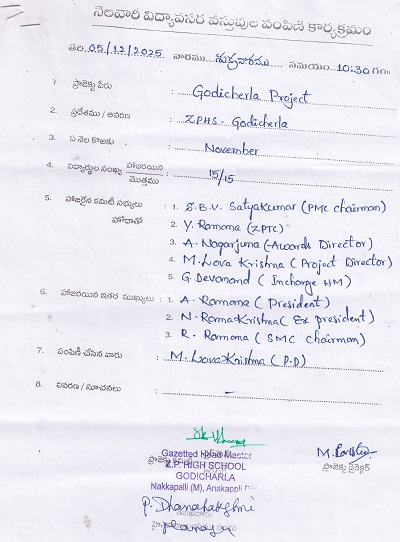 నెలవారీ విద్యావసర వస్తువుల పంపిణీ కార్యక్రమం
తేది: 05/12/2025 వారము శుక్రవారము సమయం: 10:30 గం॥
1. ప్రాజెక్టు పేరు : Godicherla Project
2. ప్రదేశము / ఆవరణ : ZPHS - Godicherla
3. ఏ నెల కొఱకు : November
4. విద్యార్థుల సంఖ్య హాజరయిన / మొత్తము : 15/15
5. హాజరైన కమిటీ సభ్యులు : 1. S.B.V. Satyakumar (PMC chairman)
హోదాతో 2. Y. Ramana (ZPTC)
3. A. Nagarjuna (-Awards Director)
4. M. Lova Krishna (Project Director)
5. G. Devanand (Incharge HM)
6. హాజరయిన ఇతర ముఖ్యులు : 1. A. Ramana (President)
2. N. RamaKrishna (Ex president)
3. R. Ramana (SMC chairman)
7. పంపిణీ చేసిన వారు : M. Lova Krishna (P.D)
8. వివరణ / సూచనలు : –
Gazetted Head Master
Z.P. HIGH SCHOOL
GODICHARLA
Nakkapalli (M), Anakapalli
ప్రాజెక్టు డైరెక్టర్
P. Dhanalakshmi